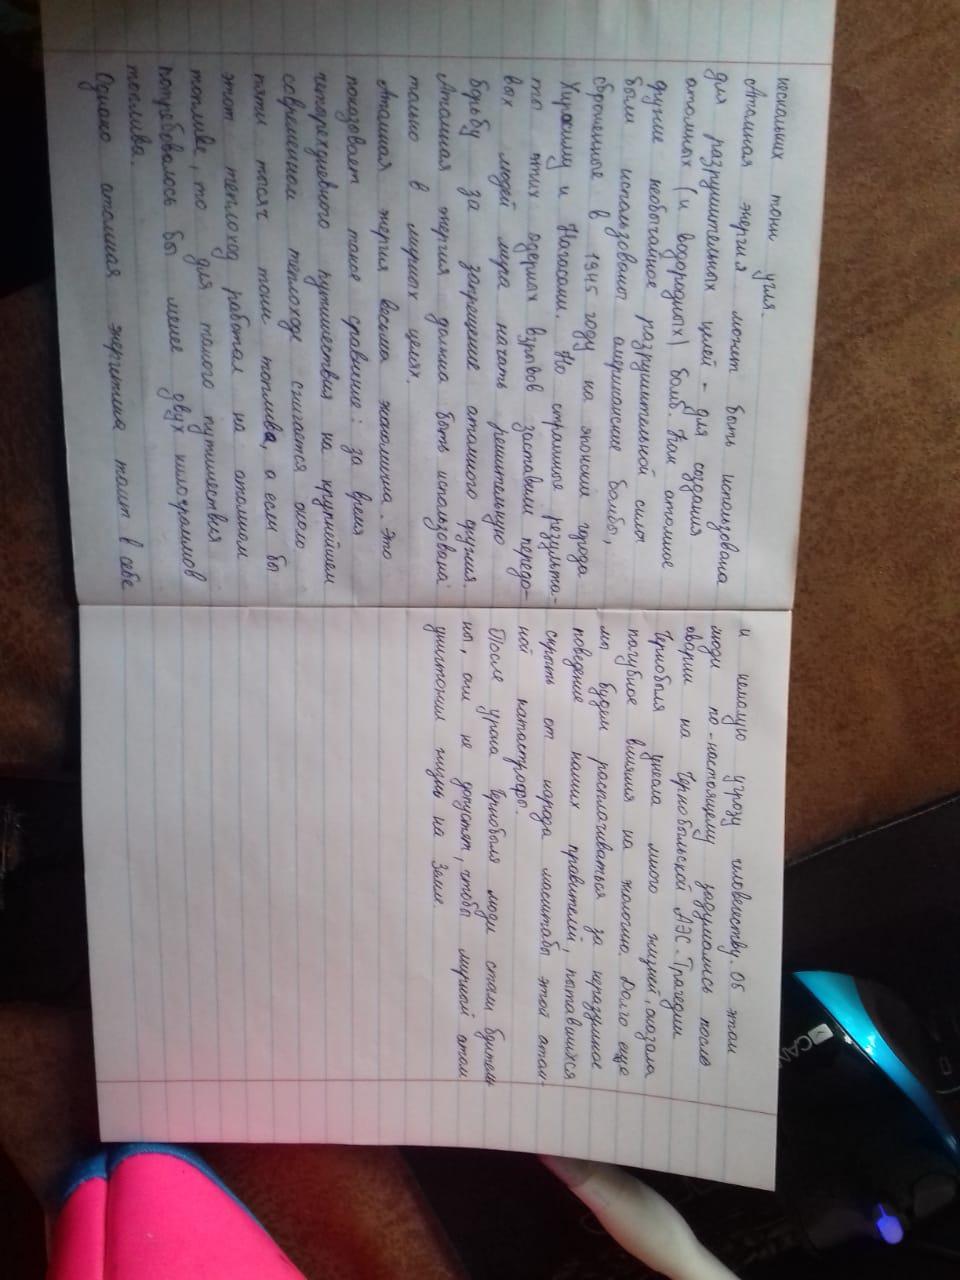 нескольких тонн угля.
Атомная энергия может быть использована
для разрушительных целей - для создания
атомных (и водородных) бомб. Как атомное
другие необычайное разрушительной силы
были использованы американские бомбы,
сброшенные в 1945 году на японские города
Хиросиму и Нагасаки. Но страшные результа-
ты этих ядерных взрывов заставили передо-
вых людей мира начать решительную
борьбу за запрещение атомного оружия.
Атомная энергия должна быть использована
только в мирных целях.
Атомная энергия весьма экономична. Это
показывает такое сравнение: за время
четырехдневного путешествия на крупнейшем
современном теплоходе сжигается около
пяти тысяч тонн топлива, а если бы
этот теплоход работал на атомном
топливе, то для такого путешествия
потребовалось бы менее двух килограммов
топлива.
Однако атомная энергетика таит в себе
и немалую угрозу человечеству. Об этом
люди по-настоящему задумались после
аварии на Чернобыльской АЭС. Трагедия
Чернобыля унесла много жизней, оказала
пагубное влияния на экологию. Долго еще
мы будем расплачиваться за неразумное
поведение наших правителей, пытавшихся
скрыть от народа масштабы этой атом-
ной катастрофы.
После урока Чернобыля люди стали бдитель
ны, они не допустят, чтобы мирный атом
уничтожил жизнь на Земле.
CAN